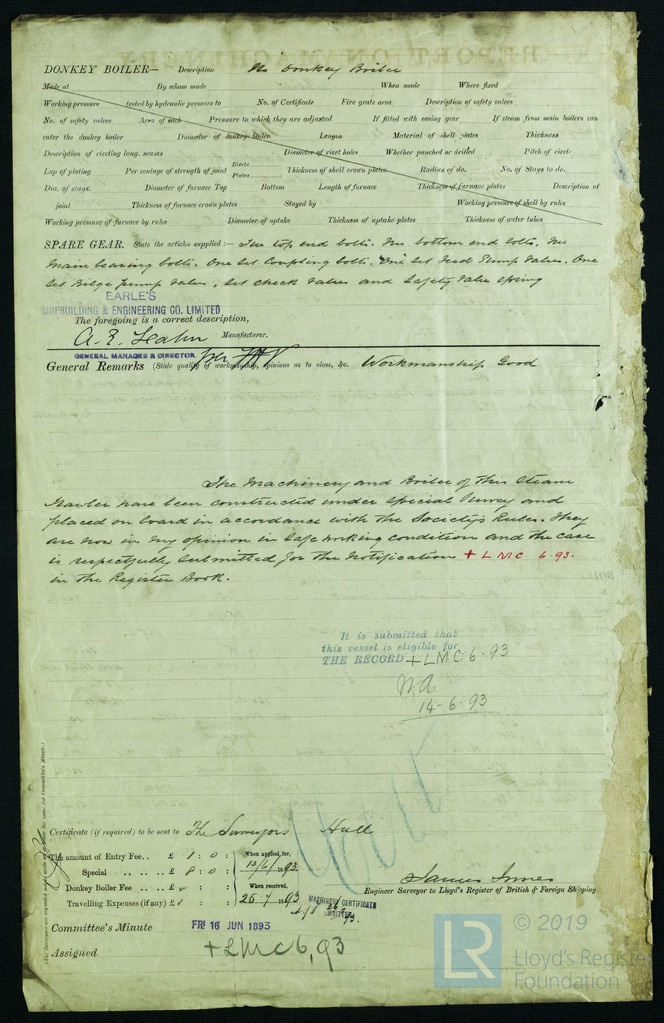 DONKEY BOILER— Description No Donkey Boiler
Made at By whom made When made Where fixed
Working pressure tested by hydraulic pressure to No. of Certificate Fire grate area Description of safety valves
No. of safety valves Area of each Pressure to which they are adjusted If fitted with easing gear If steam from main boilers can
enter the donkey boiler Diameter of donkey boiler Length Material of shell plates Thickness
Description of riveting long. seams Diameter of rivet holes Whether punched or drilled Pitch of rivets
Lap of plating Per centage of strength of joint Rivets Plates Thickness of shell crown plates Radius of do. No. of Stays to do.
Dia. of stays. Diameter of furnace Top Bottom Length of furnace Thickness of furnace plates Description of
joint Thickness of furnace crown plates Stayed by Working pressure of shell by rules
Working pressure of furnace by rules Diameter of uptake Thickness of uptake plates Thickness of water tubes
SPARE GEAR. State the articles supplied:— Two top end bolts. Two bottom end bolts. Two
Main bearing bolts. One Set Coupling bolts. One Set Feed Pump Valves. One
Set Bilge pump valves, Set Check Valves and Safety Valve Spring
EARLE'S
SHIPBUILDING & ENGINEERING CO. LIMITED
The foregoing is a correct description,
A. E. Seaton Manufacturer.
GENERAL MANAGER & DIRECTOR. per
General Remarks (State quality of workmanship, opinions as to class, &c. Workmanship Good
The Machinery and Boiler of this Steam
Trawler have been constructed under Special Survey and
placed on board in accordance with the Society's Rules. They
are now in my opinion in safe working condition and the case
is respectfully submitted for the Notification + LMC 6.93.
in the Register Book.
It is submitted that
this vessel is eligible for
THE RECORD + LMC 6.93
14-6-93
Certificate (if required) to be sent to The Surveyors Hull
The amount of Entry Fee.. £ 1 : 0 : When applied for,
Special .. .. £ 8 : 0 : 13/6/1893
Donkey Boiler Fee .. £ : When received,
Travelling Expenses (if any) £ : 26.7.1893
MACHINERY CERTIFICATE
WRITTEN.
James Innes
Engineer Surveyor to Lloyd's Register of British & Foreign Shipping
Committee's Minute FRI 16 JUN 1893
Assigned + LMC 6,93
© 2019
LR
Lloyd's Register
Foundation